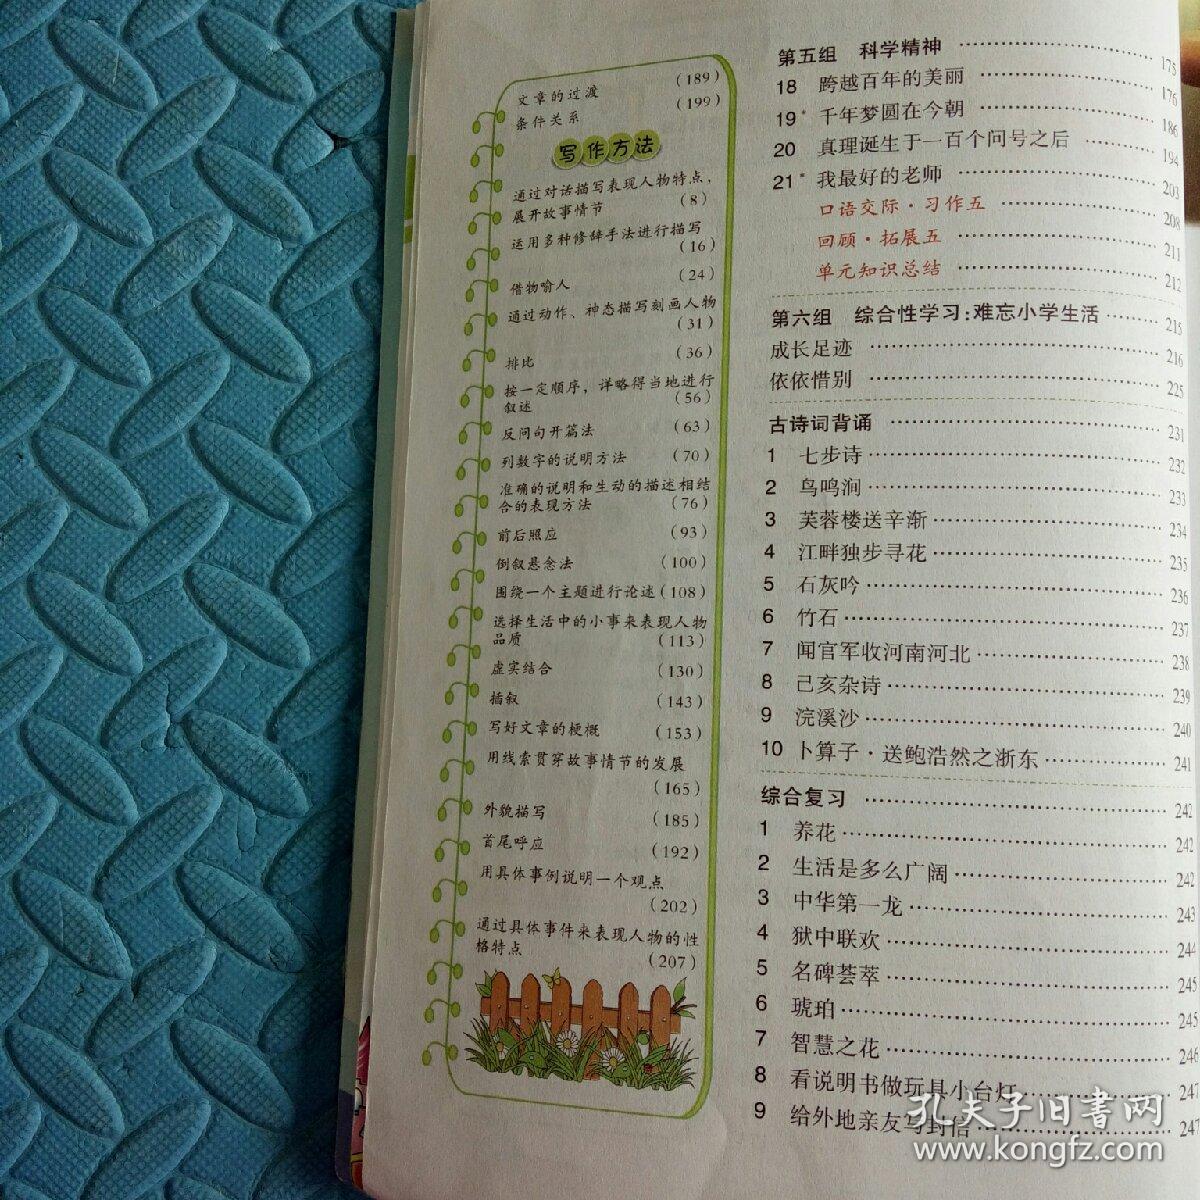 (189)
文章的过渡
(199)
条件关系
写作方法
通过对话描写表现人物特点，
展开故事情节 (8)
运用多种修辞手法进行描写
(16)
借物喻人 (24)
通过动作、神态描写刻画人物
(31)
排比 (36)
按一定顺序，详略得当地进行
叙述 (56)
反问句开篇法 (63)
列数字的说明方法 (70)
准确的说明和生动的描述相结
合的表现方法 (76)
前后照应 (93)
倒叙悬念法 (100)
围绕一个主题进行论述(108)
选择生活中的小事来表现人物
品质 (113)
虚实结合 (130)
插叙 (143)
写好文章的梗概 (153)
用线索贯穿故事情节的发展
(165)
外貌描写 (185)
首尾呼应 (192)
用具体事例说明一个观点
(202)
通过具体事件来表现人物的性
格特点 (207)
第五组 科学精神 …… 175
18 跨越百年的美丽 …… 176
19* 千年梦圆在今朝 …… 186
20 真理诞生于一百个问号之后 …… 194
21* 我最好的老师 …… 203
口语交际·习作五 …… 208
回顾·拓展五 …… 211
单元知识总结 …… 212
第六组 综合性学习：难忘小学生活 …… 215
成长足迹 …… 216
依依惜别 …… 225
古诗词背诵 …… 231
1 七步诗 …… 232
2 鸟鸣涧 …… 233
3 芙蓉楼送辛渐 …… 234
4 江畔独步寻花 …… 235
5 石灰吟 …… 236
6 竹石 …… 237
7 闻官军收河南河北 …… 238
8 己亥杂诗 …… 239
9 浣溪沙 …… 240
10 卜算子·送鲍浩然之浙东 …… 241
综合复习 …… 242
1 养花 …… 242
2 生活是多么广阔 …… 242
3 中华第一龙 …… 243
4 狱中联欢 …… 244
5 名碑荟萃 …… 245
6 琥珀 …… 245
7 智慧之花 …… 246
8 看说明书做玩具小台灯 …… 247
9 给外地亲友写封信 …… 247
孔夫子旧书网
www.kongfz.com